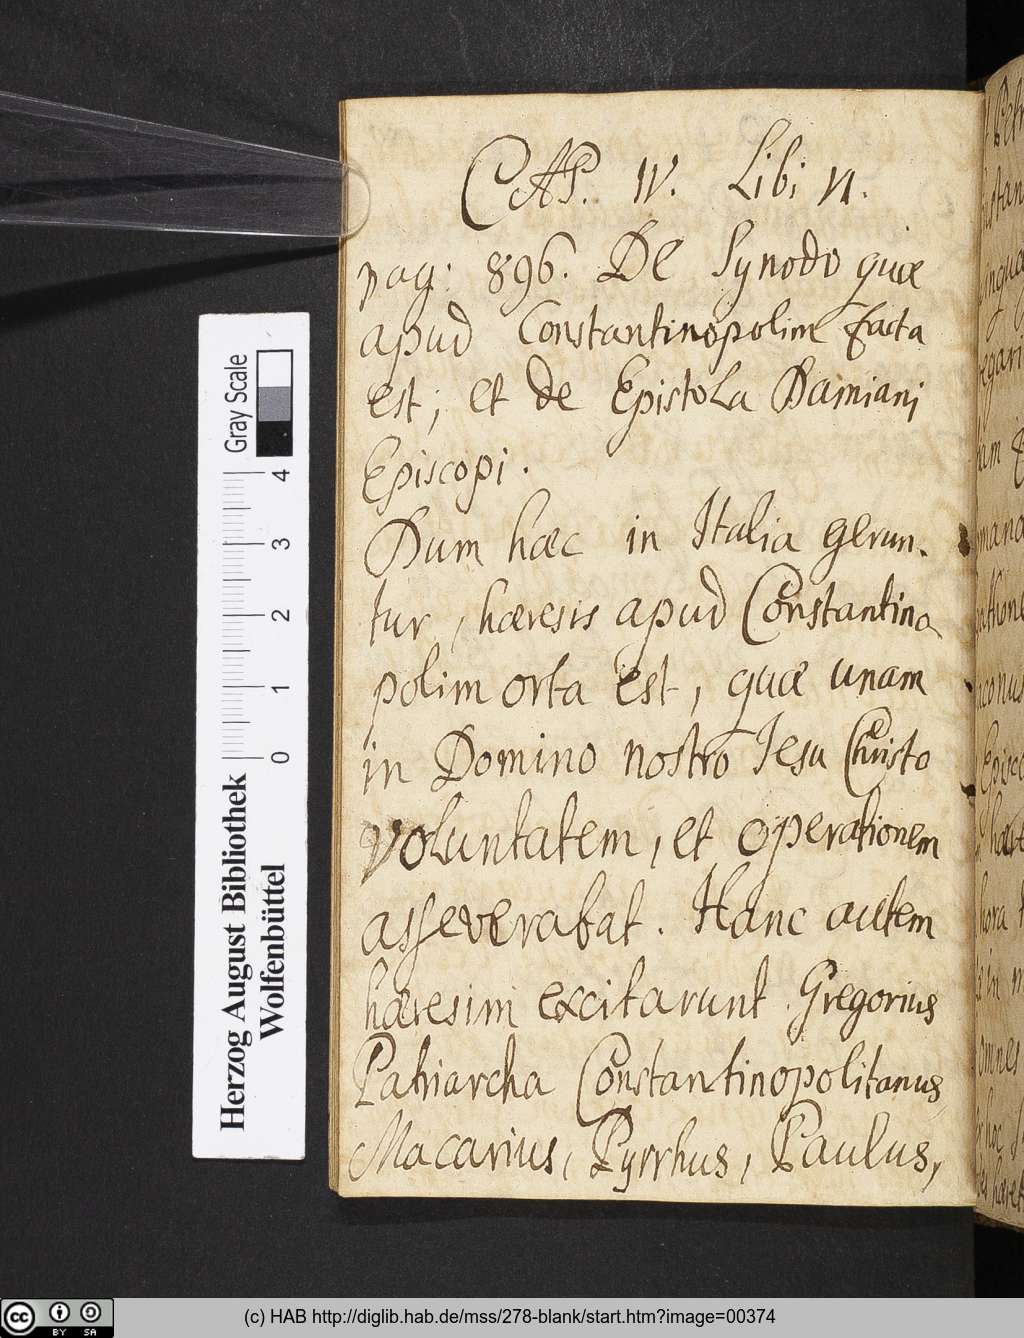 CAP. IV. Libi VI.
pag: 896. De Synodo quæ
apud Constantinopolim facta
est; et de Epistola Damiani
Episcopi.
Dum hæc in Italia gerun-
tur, hæresis apud Constantino-
polim orta est, quæ unam
in Domino nostro Jesu Christo
voluntatem, et operationem
asseverabat. Hanc autem
hæresim excitarunt Gregorius
Patriarcha Constantinopolitanus
Macarius, Pyrrhus, Paulus,
Gray Scale
0 1 2 3 4
Herzog August Bibliothek
Wolfenbüttel
cc BY SA
(c) HAB http://diglib.hab.de/mss/278-blank/start.htm?image=00374